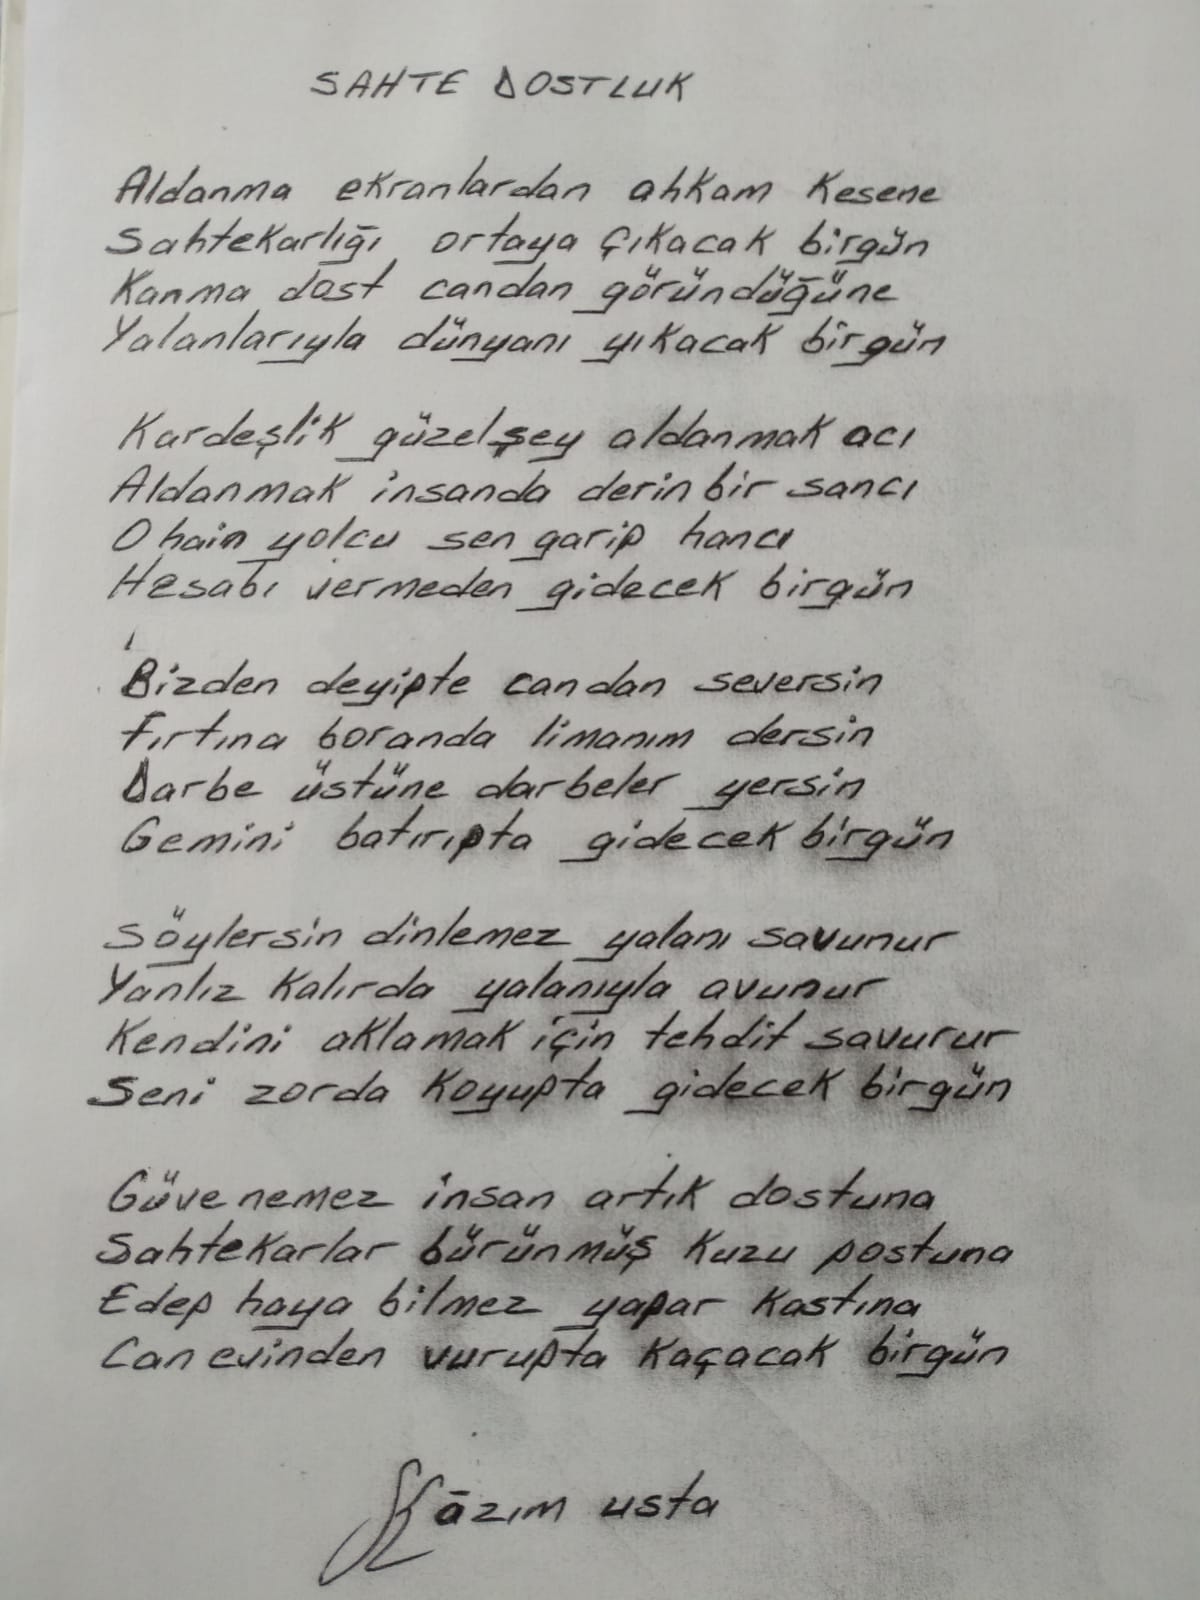 SAHTE DOSTLUK
Aldanma ekranlardan ahkam kesene
Sahtekarlığı ortaya çıkacak birgün
Kanma dost candan göründüğüne
Yalanlarıyla dünyanı yıkacak birgün
Kardeşlik güzelşey aldanmak acı
Aldanmak insanda derin bir sancı
O hain yolcu sen garip hancı
Hesabı vermeden gidecek birgün
Bizden deyipte candan seversin
Fırtına boranda limanım dersin
Darbe üstüne darbeler yersin
Gemini batırıpta gidecek birgün
Söylersin dinlemez yalanı savunur
Yanlız kalırda yalanıyla avunur
Kendini aklamak için tehdit savurur
Seni zorda koyupta gidecek birgün
Güvenemez insan artık dostuna
Sahtekarlar bürünmüş kuzu postuna
Edep haya bilmez yapar kastına
Can evinden vurupta kaçacak birgün
Kāzım usta